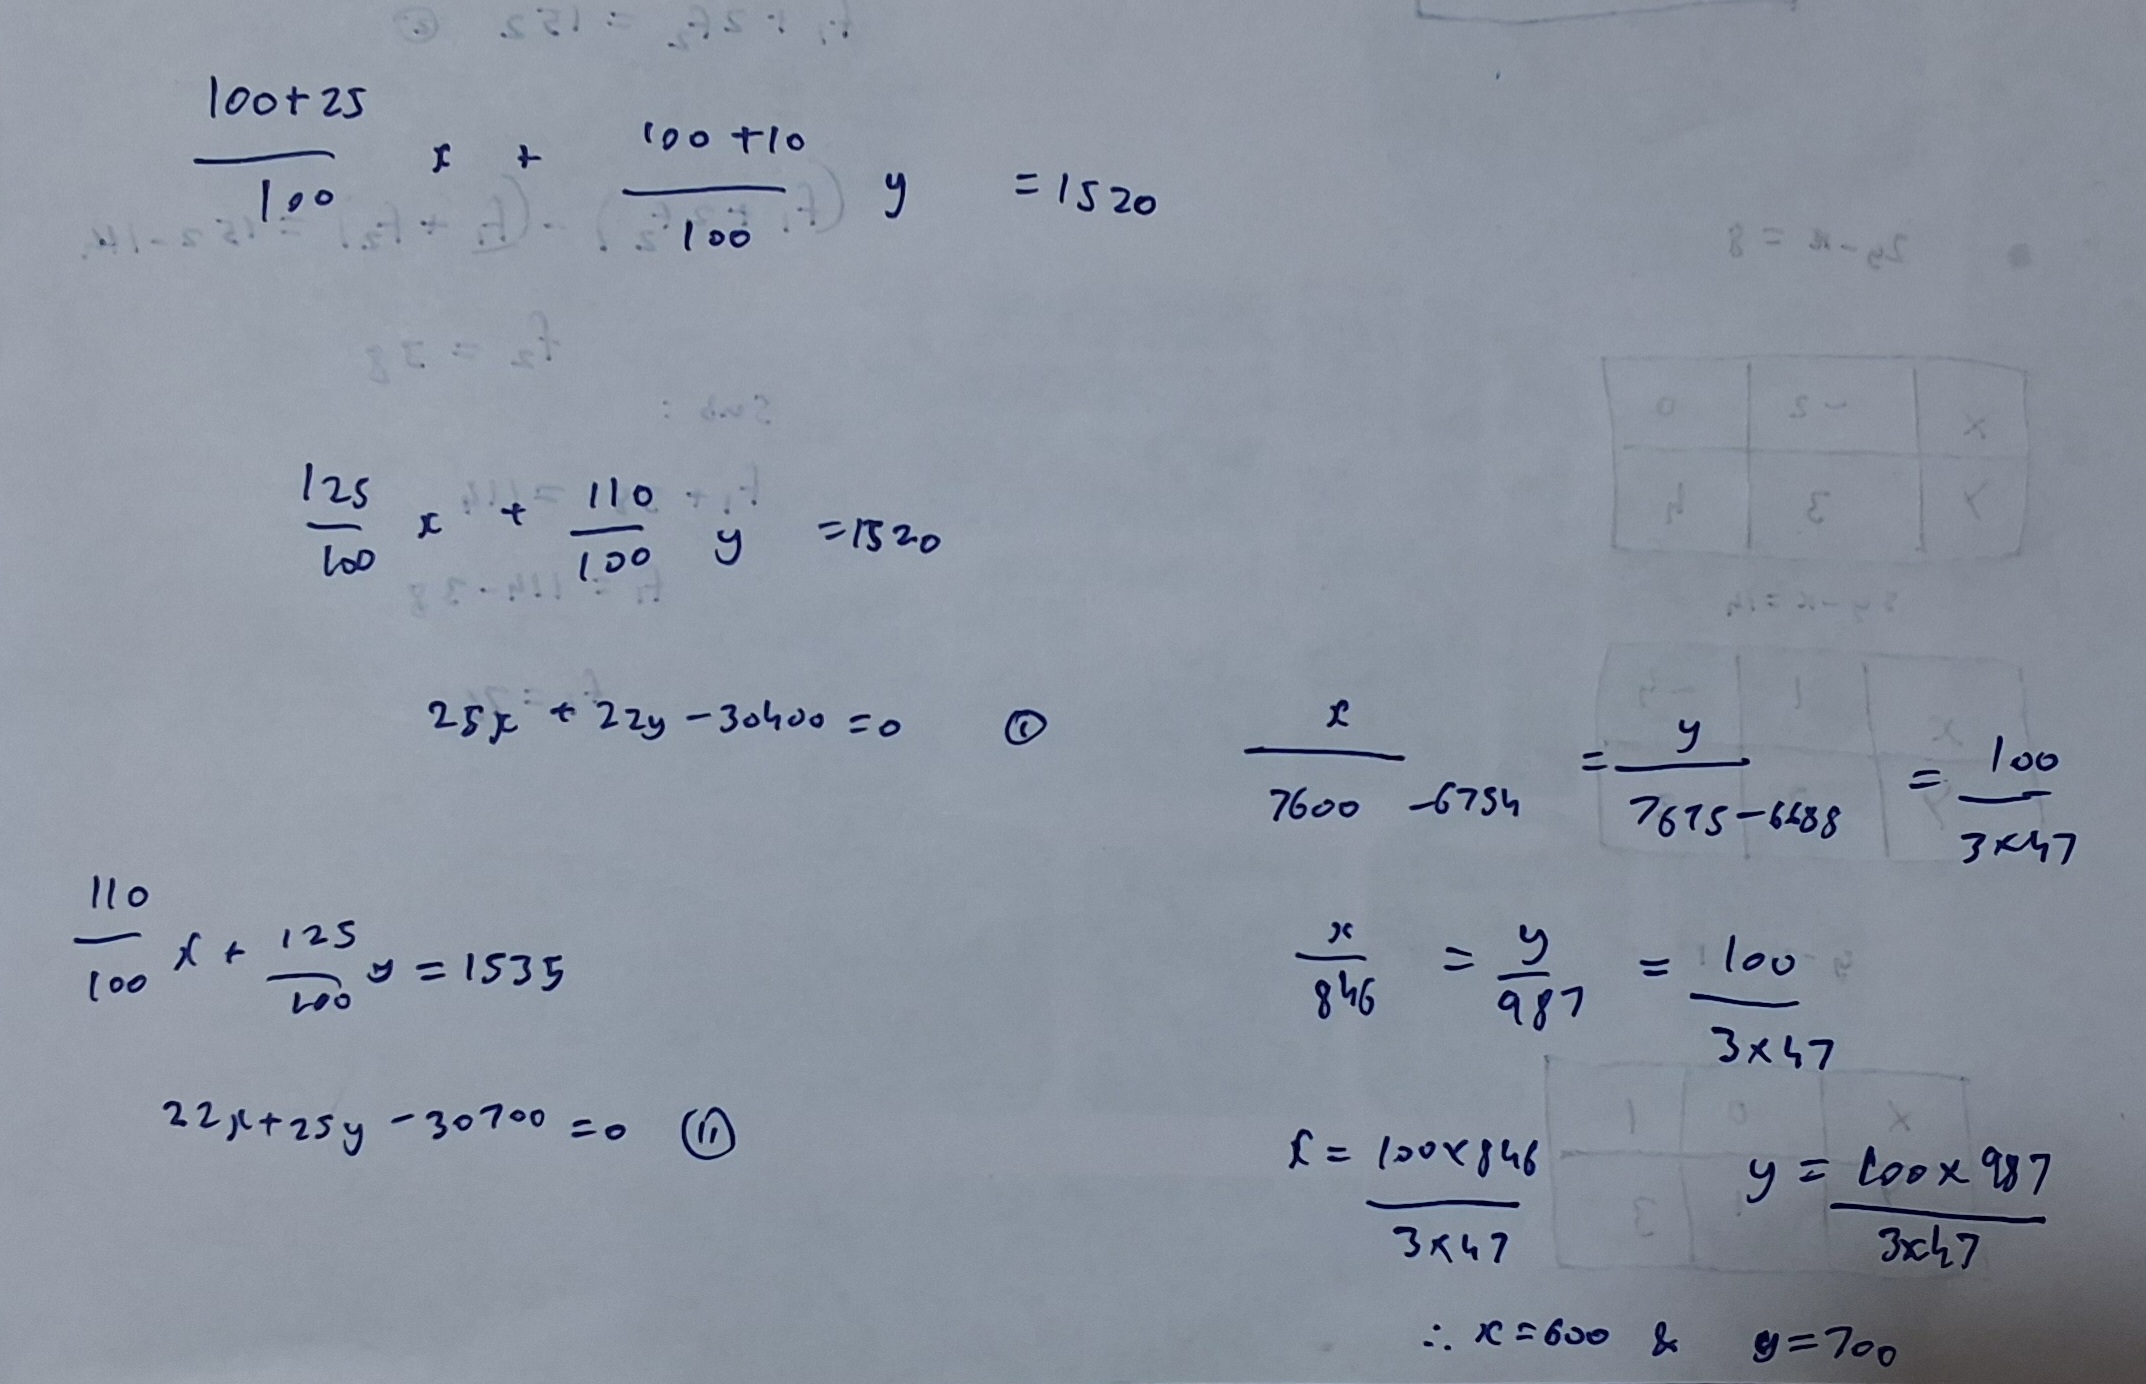 (100+25)/100 x + (100+10)/100 y = 1520
125/100 x + 110/100 y = 1520
25x + 22y - 30400 = 0 (i)
110/100 x + 125/100 y = 1535
22x + 25y - 30700 = 0 (ii)
x/(7600 - 6754) = y/(7675 - 6688) = 100/(3×47)
x/846 = y/987 = 100/(3×47)
x = (100×846)/(3×47) y = (100×987)/(3×47)
∴ x = 600 & y = 700